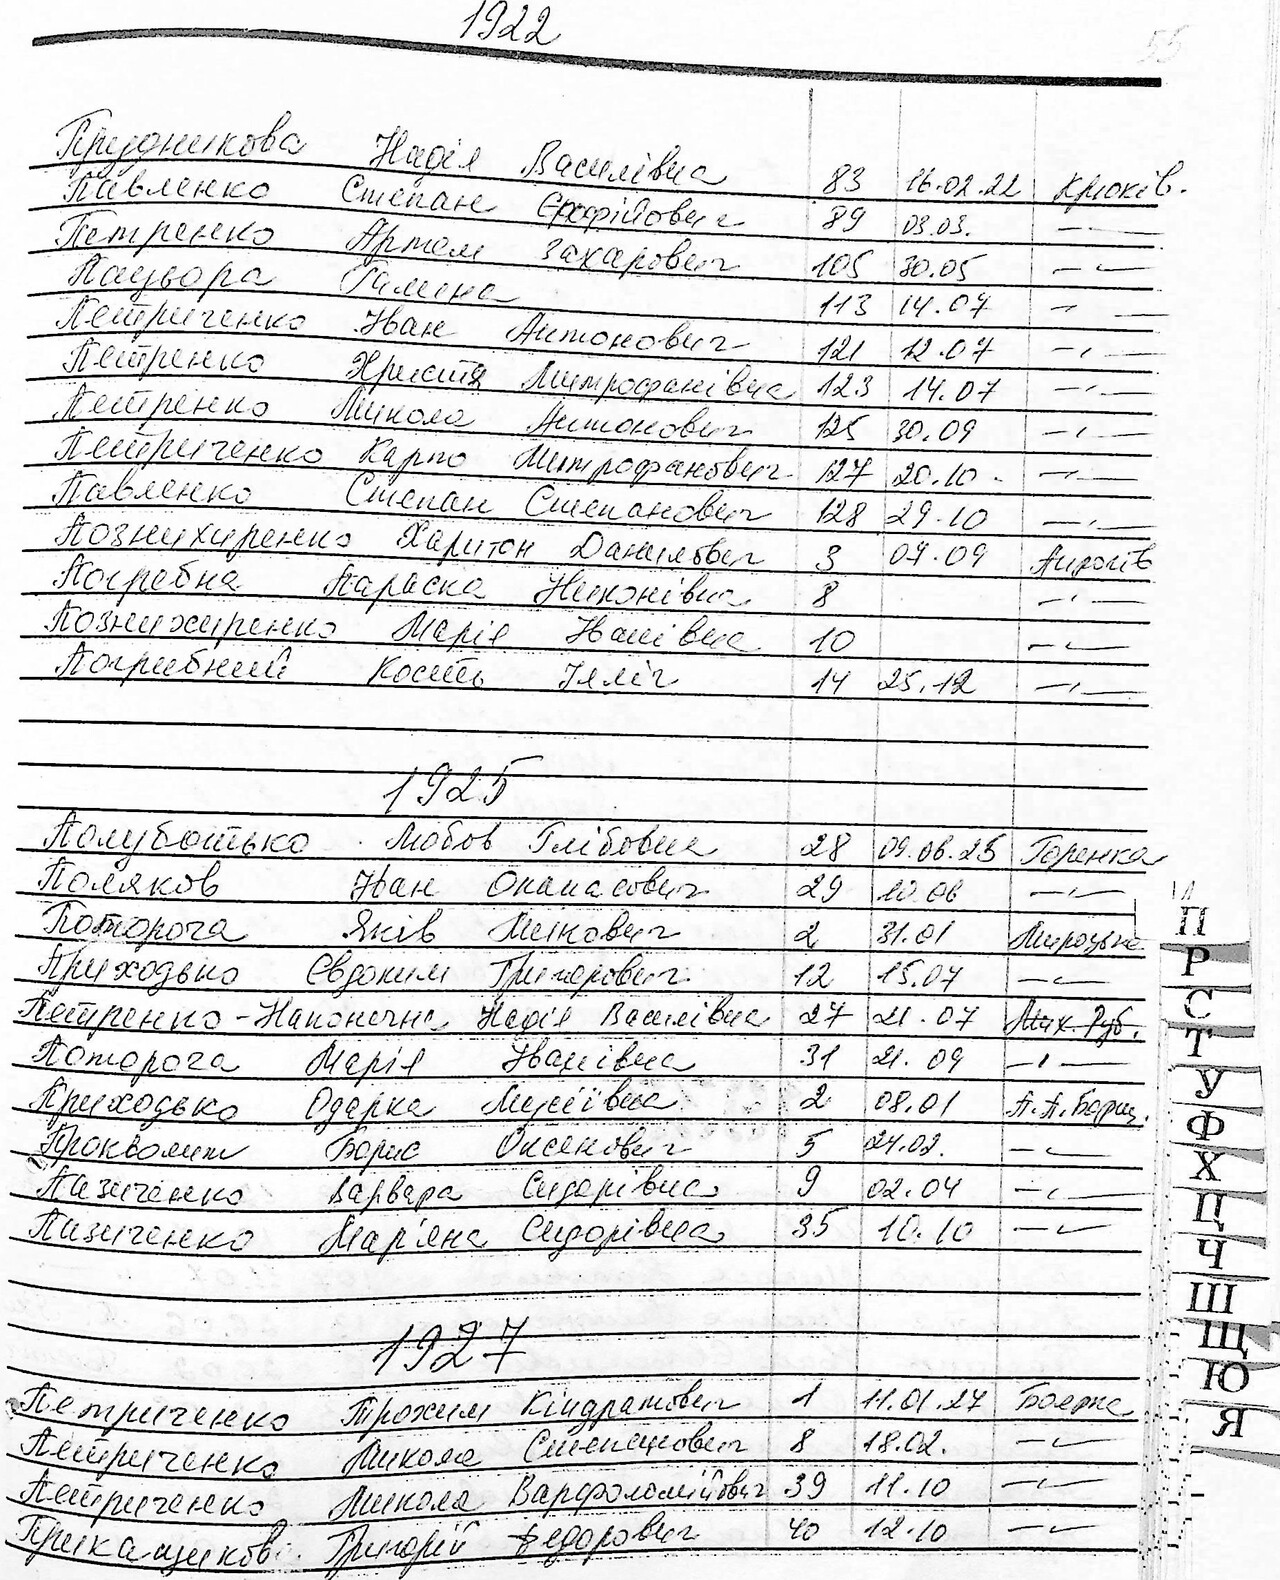 1922
55
Прудникова Надія Василівна 83 16.02.22 Крюків.
Павленко Степан 89 03.03. —„—
Петренко Артем Захарович 105 30.05 —„—
Пацьора 113 14.07 —„—
Петриченко Іван Антонович 121 12.07 —„—
Петренко Христя Митрофанівна 123 14.07 —„—
Петренко Микола Антонович 125 30.09 —„—
Петриченко Карпо Митрофанович 127 20.10 —„—
Павленко Степан Степанович 128 29.10 —„—
Познихиренко Харитон Данилович 3 04.09
Погребна Параска Никонівна 8 —„—
Познихиренко Марія Іванівна 10 —„—
Погрибний Кость Ілліч 14 25.12 —„—
1925
Полуботько Любов Глібовна 28 09.06.25 Горенка
Поляков Іван Опанасович 29 10.06 —„—
Потороча Яків 2 31.01 Мироцьке
Приходько Євдоким Григорович 12 15.07 —„—
Петренко-Наконечна Надія Василівна 27 21.07 Мих.-Руб.
Потороча Марія Іванівна 31 21.09 —„—
Приходько Одарка Мусіївна 2 08.01 П.П.Борщ.
Борис Оксенович 5 24.02. —„—
Пазиченко Варвара Сидорівна 9 02.04 —„—
Пазиченко Мар'яна Сидорівна 35 10.10 —„—
1927
Петриченко Трохим Кіндратович 1 11.01.27 Боярка
Петриченко Микола Степанович 8 18.02. —„—
Петриченко Микола Варфоломійович 39 11.10 —„—
Прикащиков Григорій Федорович 40 12.10 —„—
П
Р
С
Т
У
Ф
Х
Ц
Ч
Ш
Щ
Ю
Я